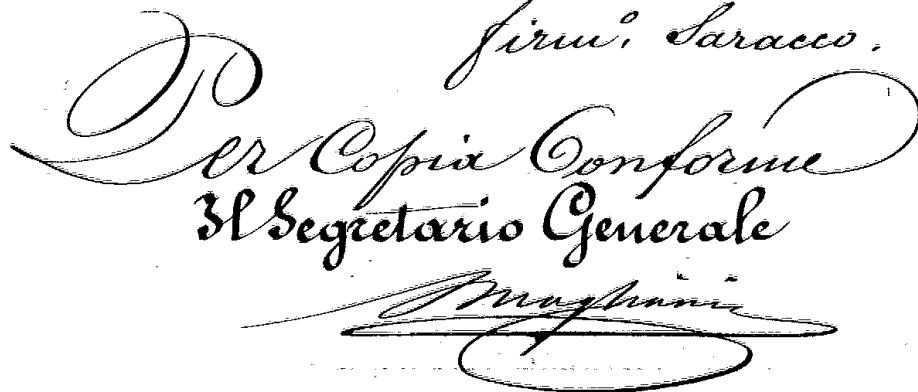 firmº. Saracco.
Per Copia Conforme
Il Segretario Generale